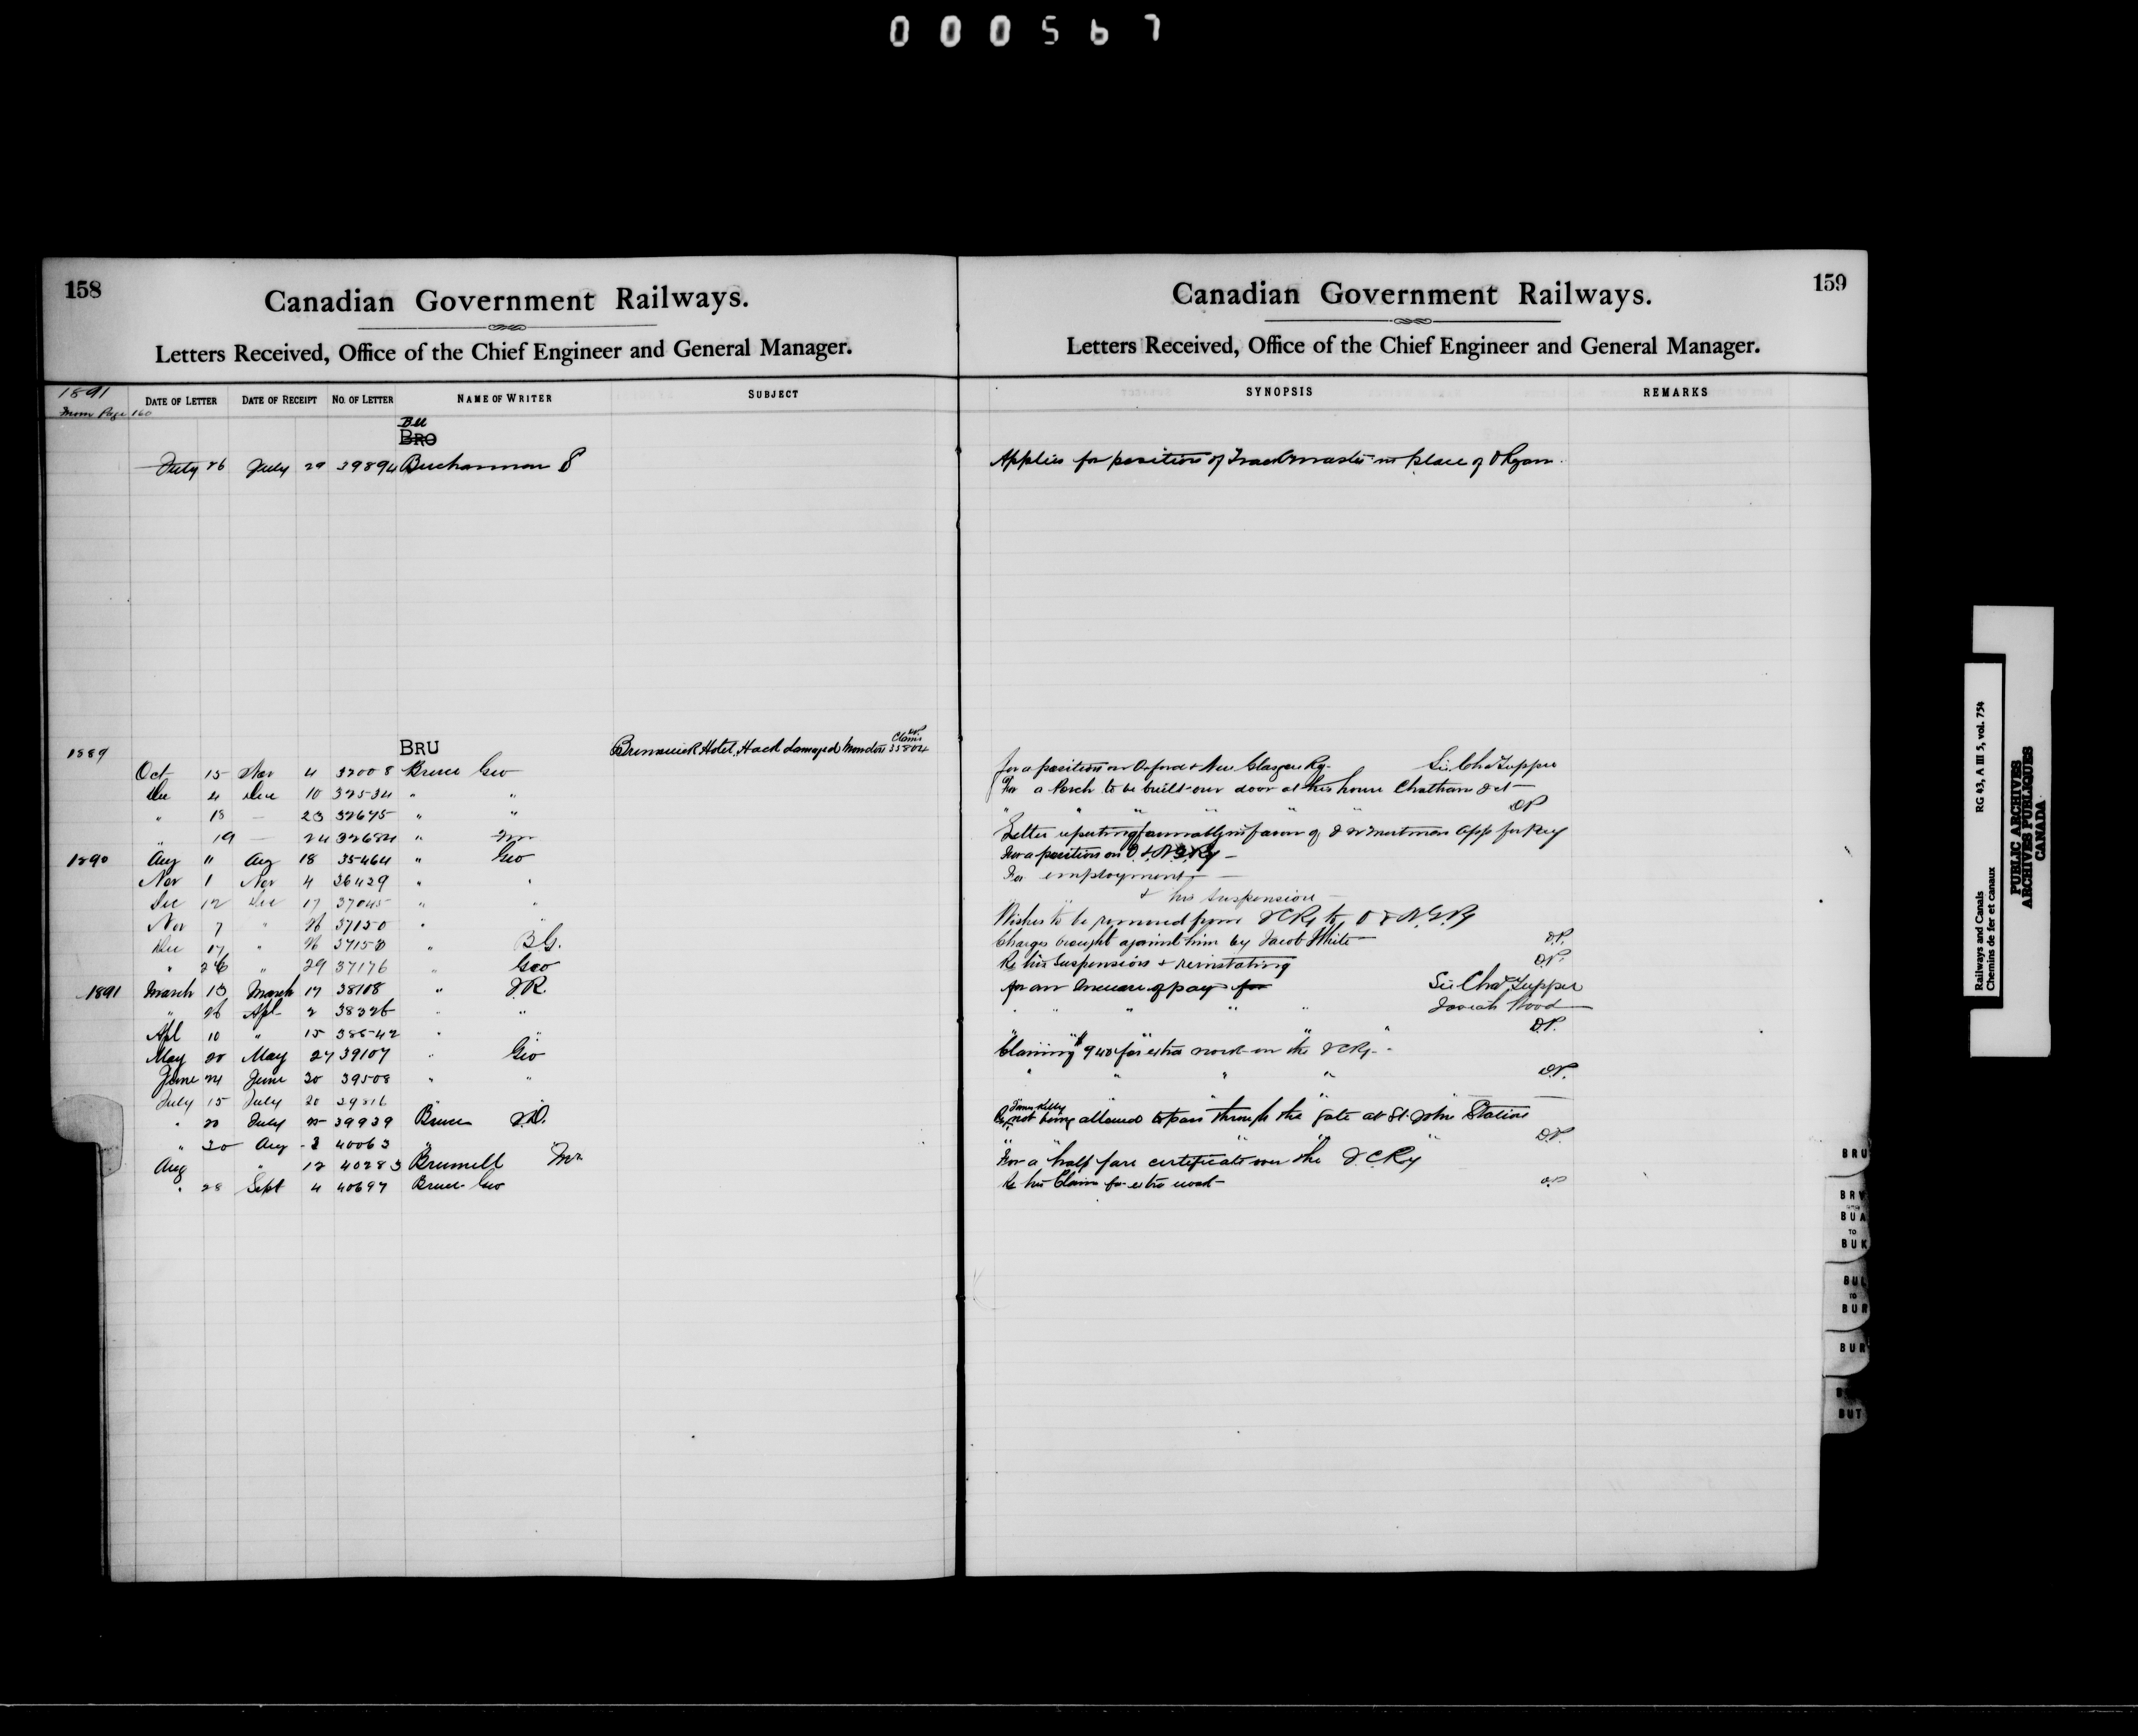 000567
158
Canadian Government Railways.
Letters Received, Office of the Chief Engineer and General Manager.
1891
From Page 160
DATE OF LETTER DATE OF RECEIPT NO. OF LETTER NAME OF WRITER SUBJECT
BU
BRO
July 26 July 29 39894 Buchannan
1889
BRU Brunswick Hotel, Hack damaged Claim 35804
Oct 15 Nov 4 32008 Bruce Geo
Dec 4 Dec 10 32534 " "
" 18 — 23 32675 " "
" 19 — 24 32684 " Wm
1890 Aug 11 Aug 18 35464 " Geo
Nov 1 Nov 4 36429 " "
Dec 12 Dec 17 37045 " "
Nov 7 " 26 37150 " "
Dec 17 " 26 37158 " B G.
" 26 " 29 37176 " Geo
1891 March 13 March 17 38108 " J R.
" 26 Apl 2 38326 " "
Apl 10 " 15 38542 " "
May 20 May 27 39107 " Geo
June 24 June 30 39508 " "
July 15 July 20 39816
" 20 July 25 39939 Bruce
" 30 Aug 3 40063 "
Aug " 12 40283 Brumell Mr
" 28 Sept 4 40697 Bruce Geo
159
Canadian Government Railways.
Letters Received, Office of the Chief Engineer and General Manager.
SYNOPSIS REMARKS
Applies for position of Trackmaster in place of
for a position on Oxford & New Glasgow Ry. Sir Chas Tupper
For a Porch to be built over door at his house Chatham Jct
" " " " " " DP
Letter reporting favourably in favor of app for
For a position on O. & N G Ry —
For employment —
" & his suspension —
Wishes to be removed from I C Ry to O & N. G. Ry
Charges brought against him by Jacob White D.P.
Re his Suspension & reinstating D.P.
for an increase of pay for Sir Chas Tupper
" " " " " Josiah Wood
" " " " " D.P.
Claiming $940 for extra work on the I C Ry.
" " " " D.P.
" " " "
Re James Kelly not being allowed to pass through the gate at St. John Station
" " " " " D.P.
For a half fare certificate over the I. C. Ry
Re his Claim for extra work D.P.
BRU
BRY
BUA
TO
BUK
BUL
TO
BUR
BUR
BUT
Railways and Canals RG 43, A III 5, vol. 754
Chemins de fer et canaux
PUBLIC ARCHIVES
ARCHIVES PUBLIQUES
CANADA